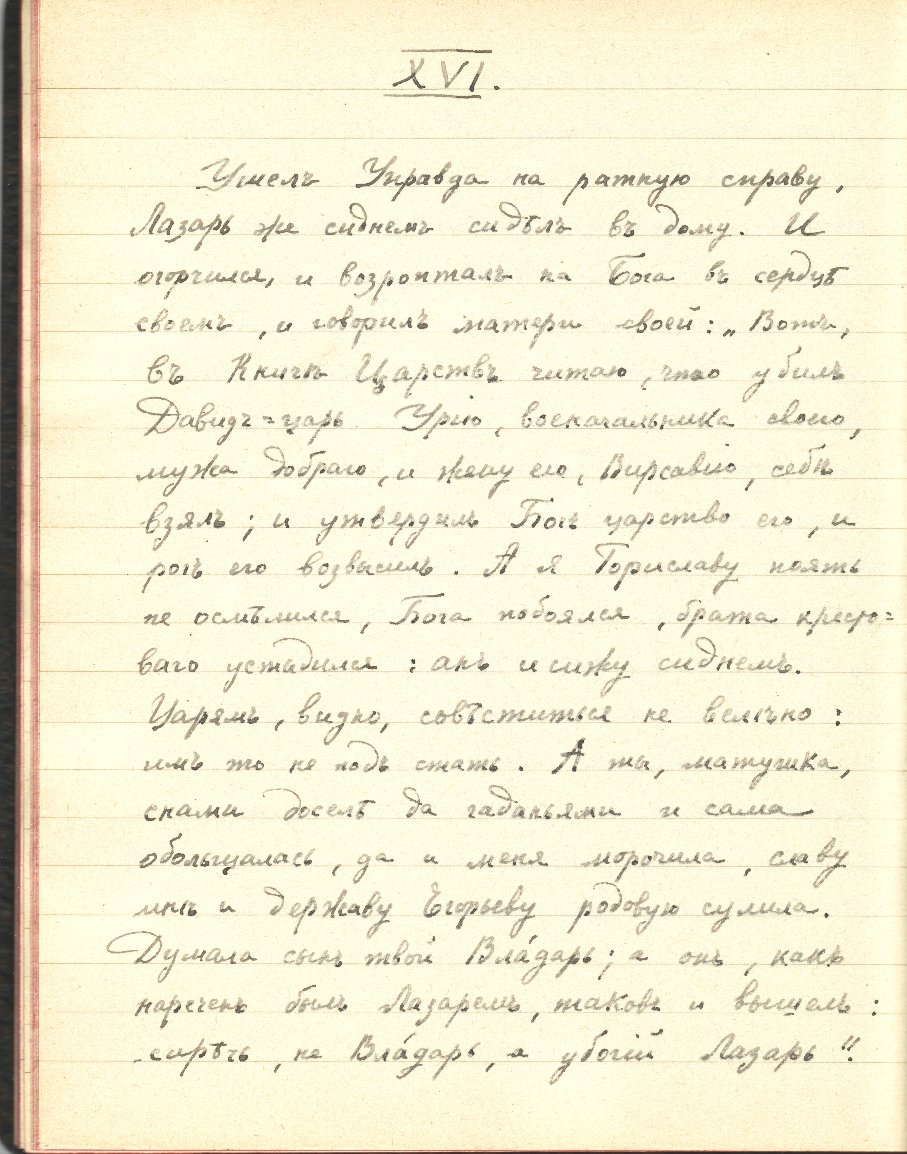 XVI.
Ушелъ Управда на ратную справу,
Лазарь же сиднемъ сидѣлъ въ дому. И
огорчился, и возропталъ на Бога въ сердцѣ
своемъ, и говорилъ матери своей: „Вотъ,
въ Книгѣ Царствъ читаю, что убилъ
Давидъ=царь Урію, военачальника своего,
мужа добраго, и жену его, Вирсавію, себѣ
взялъ; и утвердилъ Богъ царство его, и
рогъ его возвысилъ. А я Гориславу поять
не осмѣлился, Бога побоялся, брата кресто=
ваго устыдился: анъ и сижу сиднемъ.
Царямъ, видно, совѣститься не велѣно:
имъ то не подъ стать. А ты, матушка,
снами доселѣ да гаданьями и сама
обольщалась, да и меня морочила, славу
мнѣ и державу Егорьеву родовую сулила.
Думала сынъ твой Вла́дарь; а онъ, какъ
нареченъ былъ Лазаремъ, таковъ и вышелъ:
сирѣчь, не Вла́дарь, а убогій Лазарь“.